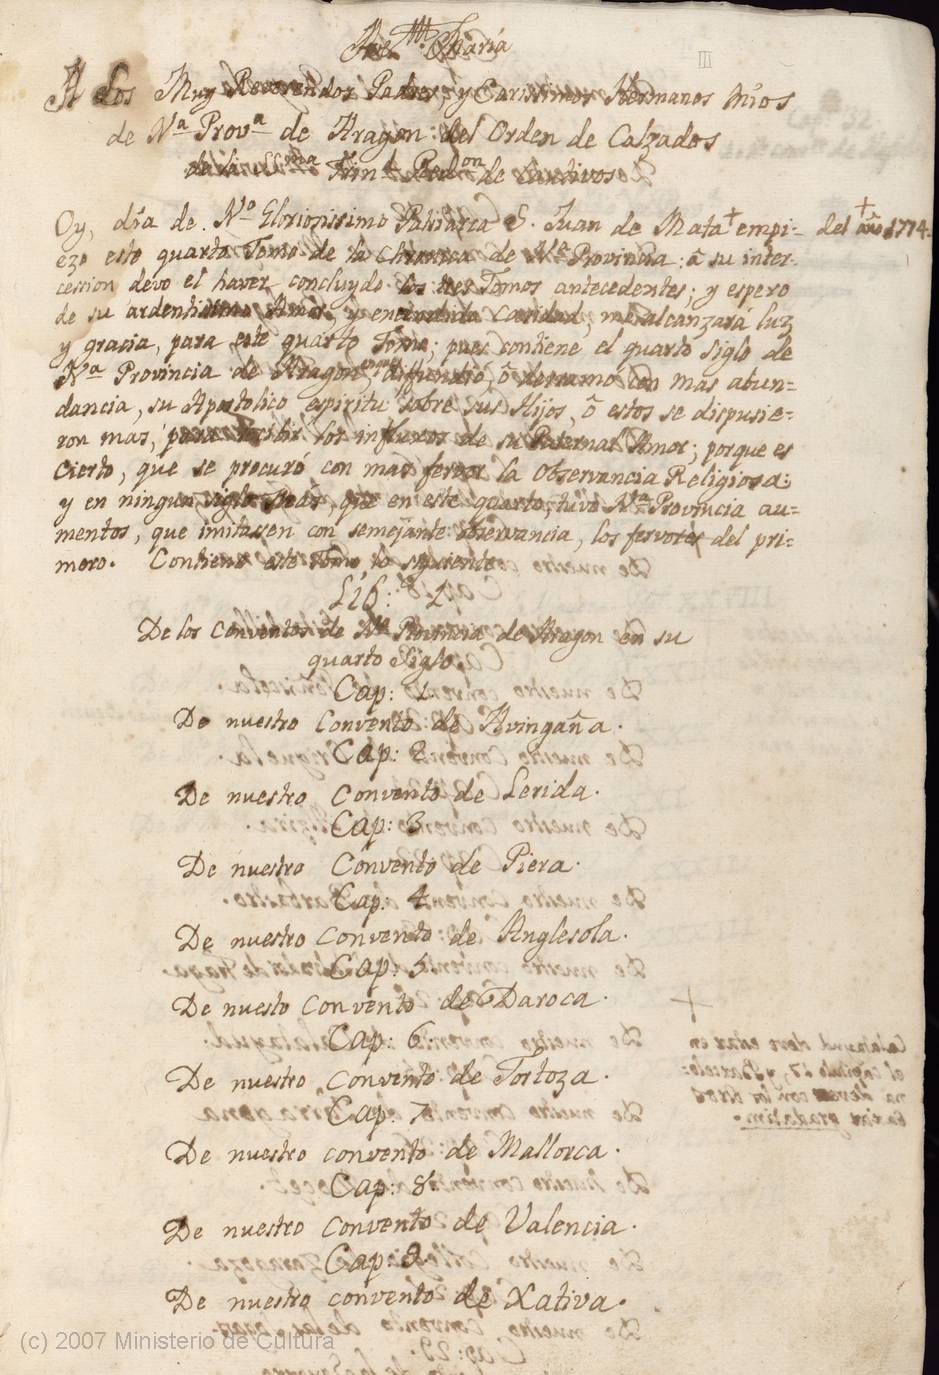 Ave Maria
III
A Los Muy Reverendos Padres, y Carissimos Hermanos mios
de Nª Provª de Aragon: del Orden de Calzados
de la SSma Trind. Redon de Cautivos
Oy, dia de Nº Gloriosissimo Patriarca S. Juan de Mata + empi- del + año 1774.
ezo este quarto Tomo de la Chronica de Nª Provincia: â su inter-
cession devo el haver concluydo los tres Tomos antecedentes; y espero
de su ardentissimo Amor, y encendida caridad, me alcanzará luz
y gracia, para este quarto Tomo; pues contiene el quarto siglo de
Nª Provincia de Aragon, diffundió, ô derramó con mas abun=
dancia, su Apostolico espiritu sobre sus Hijos, ô estos se dispusie=
ron mas, para recibir los influxos de su Paternal Amor; porque es
cierto, que se procuró con mas fervor la Observancia Religiosa:
y en ningun siglo que en este quarto, tuvo Nª Provincia au=
mentos, que imitassen con semejante observancia, los fervores del pri=
mero. Contiene este Tomo lo siguiente
Lib: 1
De los conventos de Nª Provincia de Aragon en su
quarto Siglo.
Cap: 1.
De nuestro Convento de Avingaña.
Cap: 2.
De nuestro Convento de Lerida.
Cap: 3
De nuestro Convento de Piera.
Cap. 4
De nuestro Convento de Anglesola.
Cap: 5
De nuesto Convento de Daroca.
Cap: 6.
De nuestro Convento de Tortoza.
Cap: 7
De nuestro convento de Mallorca.
Cap: 8
De nuestro Convento de Valencia.
Cap: 9
De nuestro convento de Xativa.
(c) 2007 Ministerio de Cultura